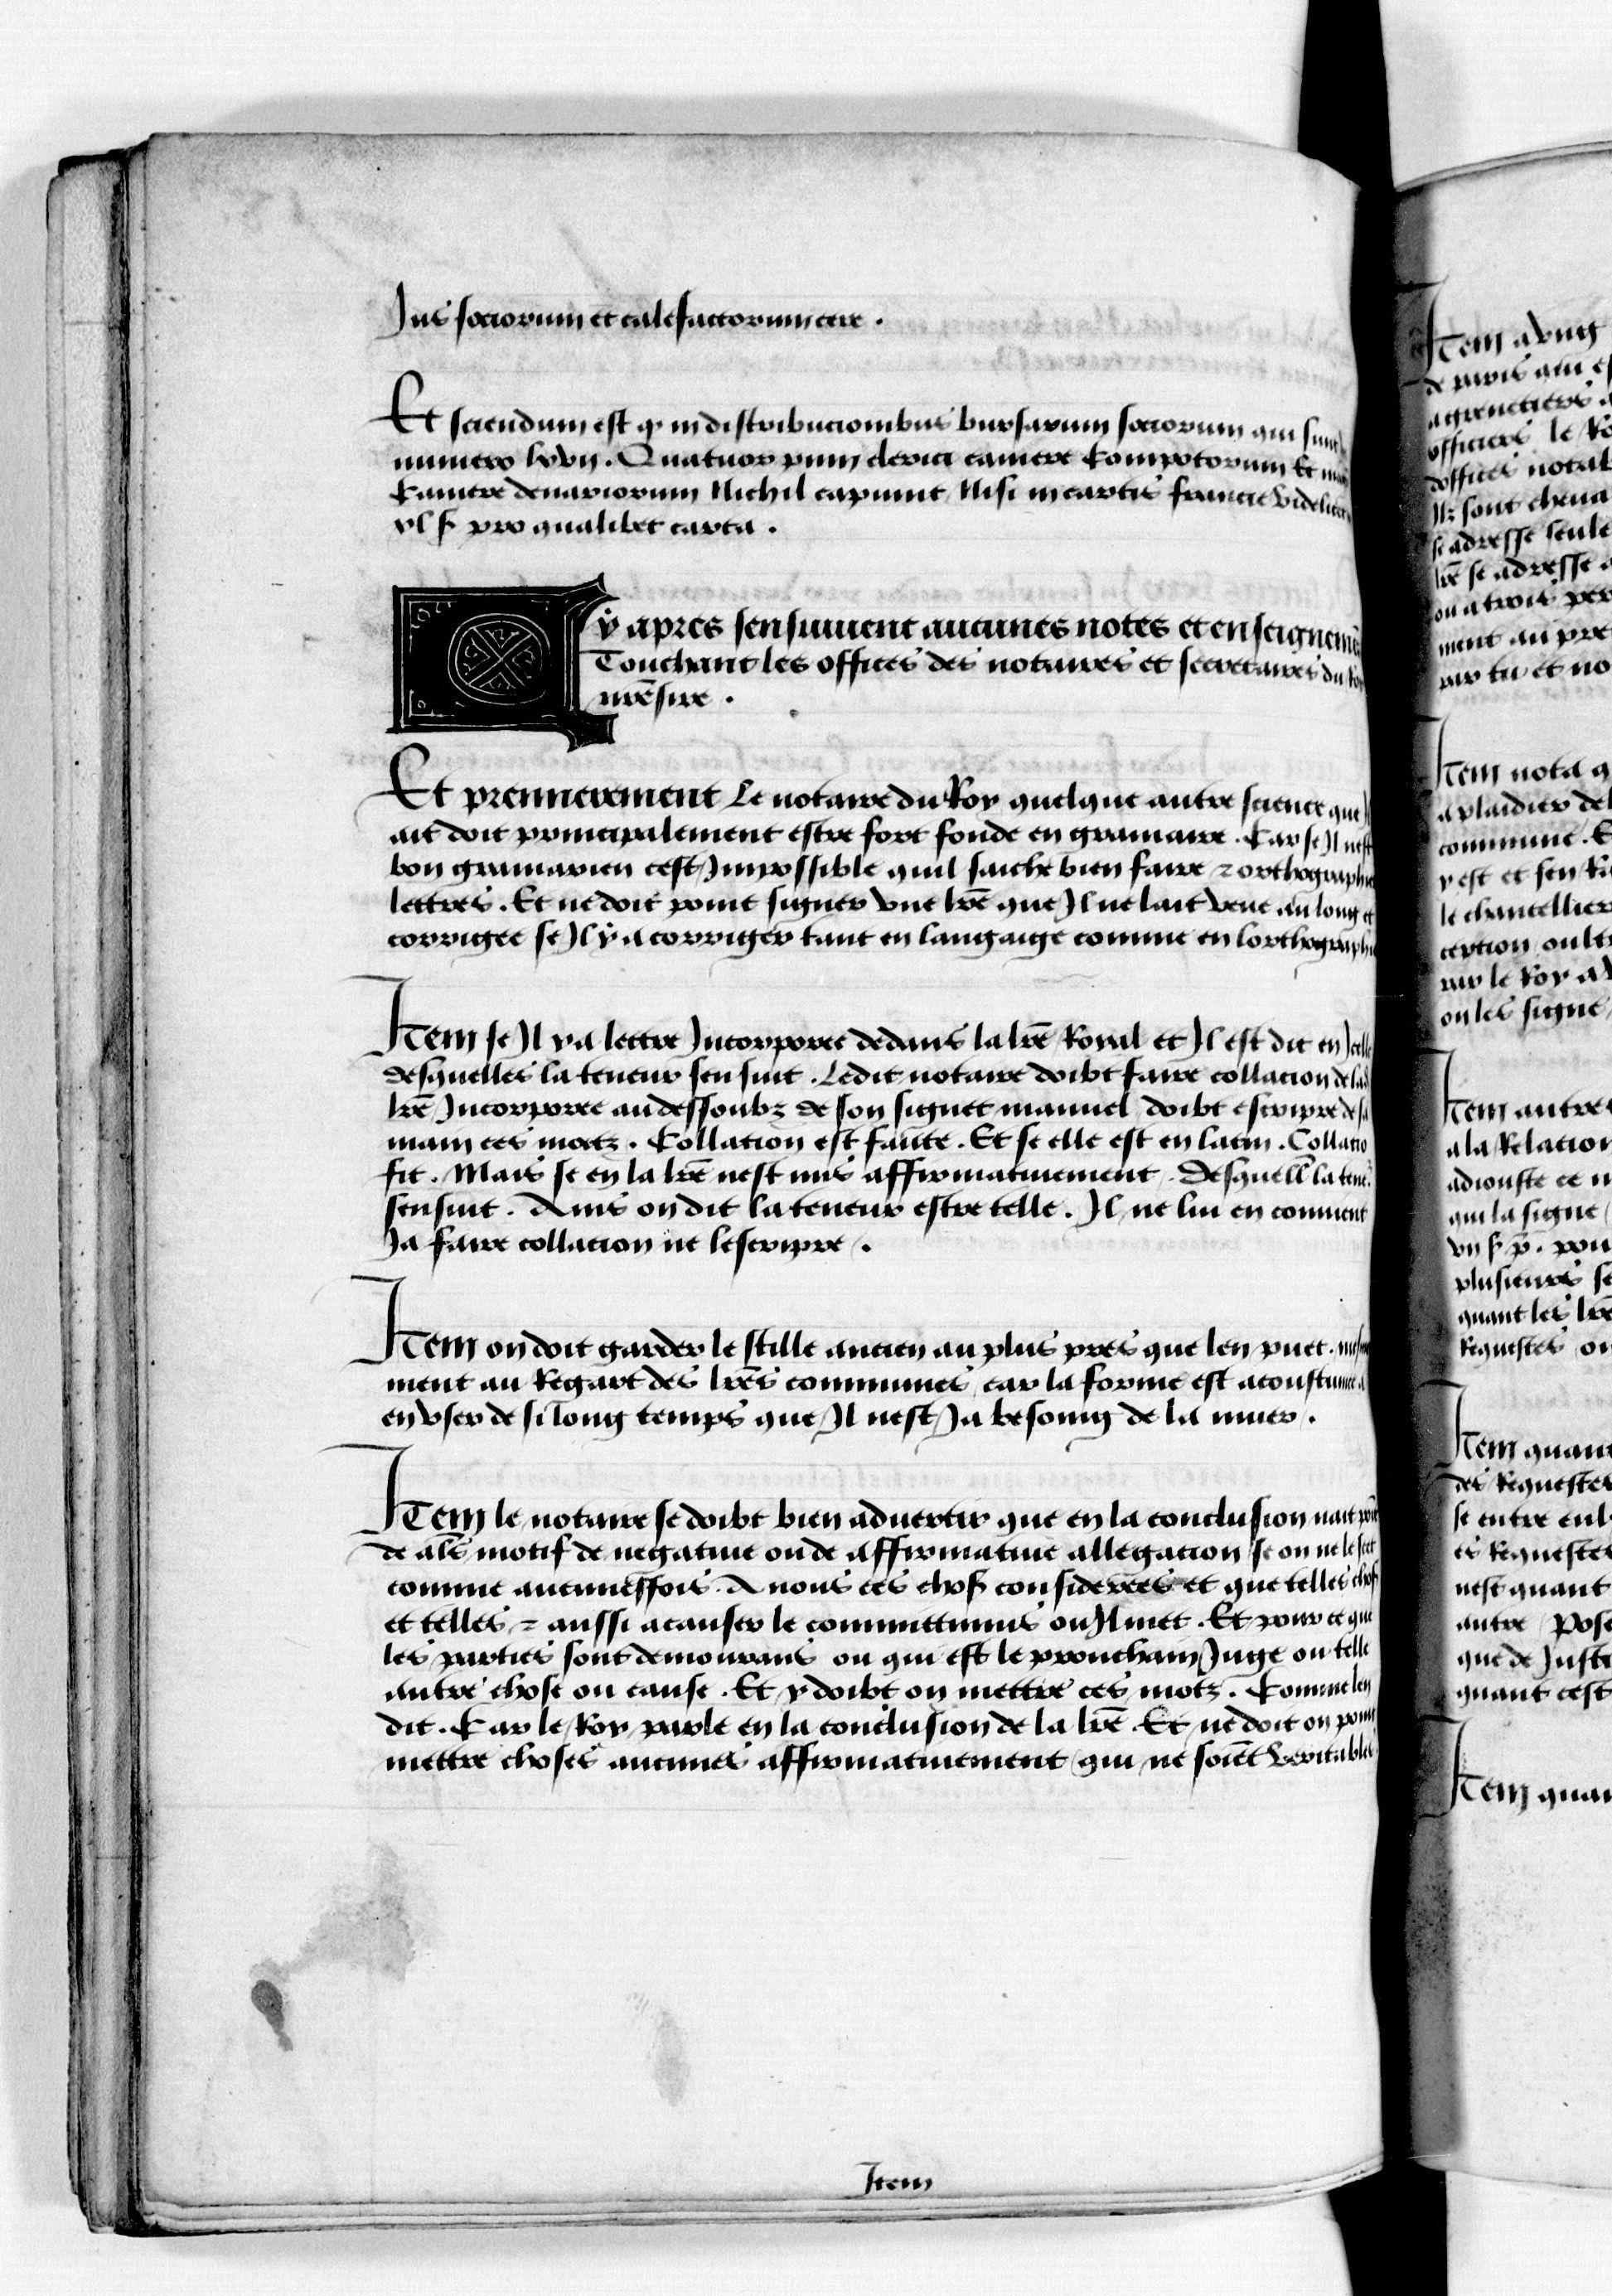 Jus sociorum et calefactorum cere .
Et sciendum est q̃ in distribucionibus bursarum sociorum qui sunt
numero lxvij . Quatuor pum clerici camere Compotorum Et
Camere denariorum Nichil capiunt Nisi in cartis francie videlicet
vl ſ pro qualibet carta .
Cy apres sensuiuent aucunes notes et enseignemẽs
Touchant les offices des notaires et secretaires du Roy
nrẽ sire .
Et premierement Le notaire du Roy quelque autre science que Il
ait doit principalement estre fort fonde en gramaire . Car se Il nest
bon gramarien cest Impossible quil saiche bien faire ⁊ orthographier
lettres . Et ne doit point signer vne lrẽ que Il ne lait veue au long et
corrigee se Il y a corriger tant en langaige comme en lorthographie
Item se Il ya lettre Incorporee dedans la lrẽ Royal et Il est dit en Icelle
desquelles la teneur sen suit . Ledit notaire doibt faire collacion de lad
lrẽ Incorporee au dessoubz de son signet manuel doibt escripre de sa
main ces motz . Collation est faicte . Et se elle est en latin . Collatio
fit . Mais se en la lrẽ nest mis affirmatiuement . Desquell̃ la teneˀ
sensuit . Ains on dit la teneur estre telle . Il ne luy en conuient
Ja faire collacion ne lescripre .
Item on doit garder le stille ancien au plus pres que len puet .
ment au Regart des lrẽs communes car la forme est acoustumee a
en vser de si long temps que Il nest Ja besoing de la muer .
Item le notaire se doibt bien aduertir que en la conclusion nait poĩt
de alẽ motif de negatiue ou de affirmatiue allegacion se on ne le scet
comme aucuneffois . A nous ces choſ considerees et que telles choſ
et telles ⁊ aussi a causer le committimus ou Il met . Et pour ce que
les parties sont demourans ou qui est le prouchain Juge ou telle
autre chose ou cause . Et y doibt on mettre ces motz . Comme len
dit . Car le Roy parle en la conclusion de la lrẽ . Et ne doit on point
mettre choses aucunes affirmatiuement qui ne soiẽt veritables
Item
Item a vng
de paris qui
a grenetiers
officiers le
doffices notab
Ilz sont cheua
se adresse seule
lrẽ se adresse a
ou a trois per
ment au pre
par tu et no
Item nota q
a plaidier de
commune . E
y est et sen
le chancellier
ception oult
par le Roy a
on les signe
Item autre
a la Relacion
adiouste ce
qui la signe
vn ſ p̃ . pou
plusieurs se
quant les lrẽ
Requestes ou
Item quant
des Requestes
se entre
es Requestes
nest quant
autre / Pose
que de Justi
quant cest
Item quan